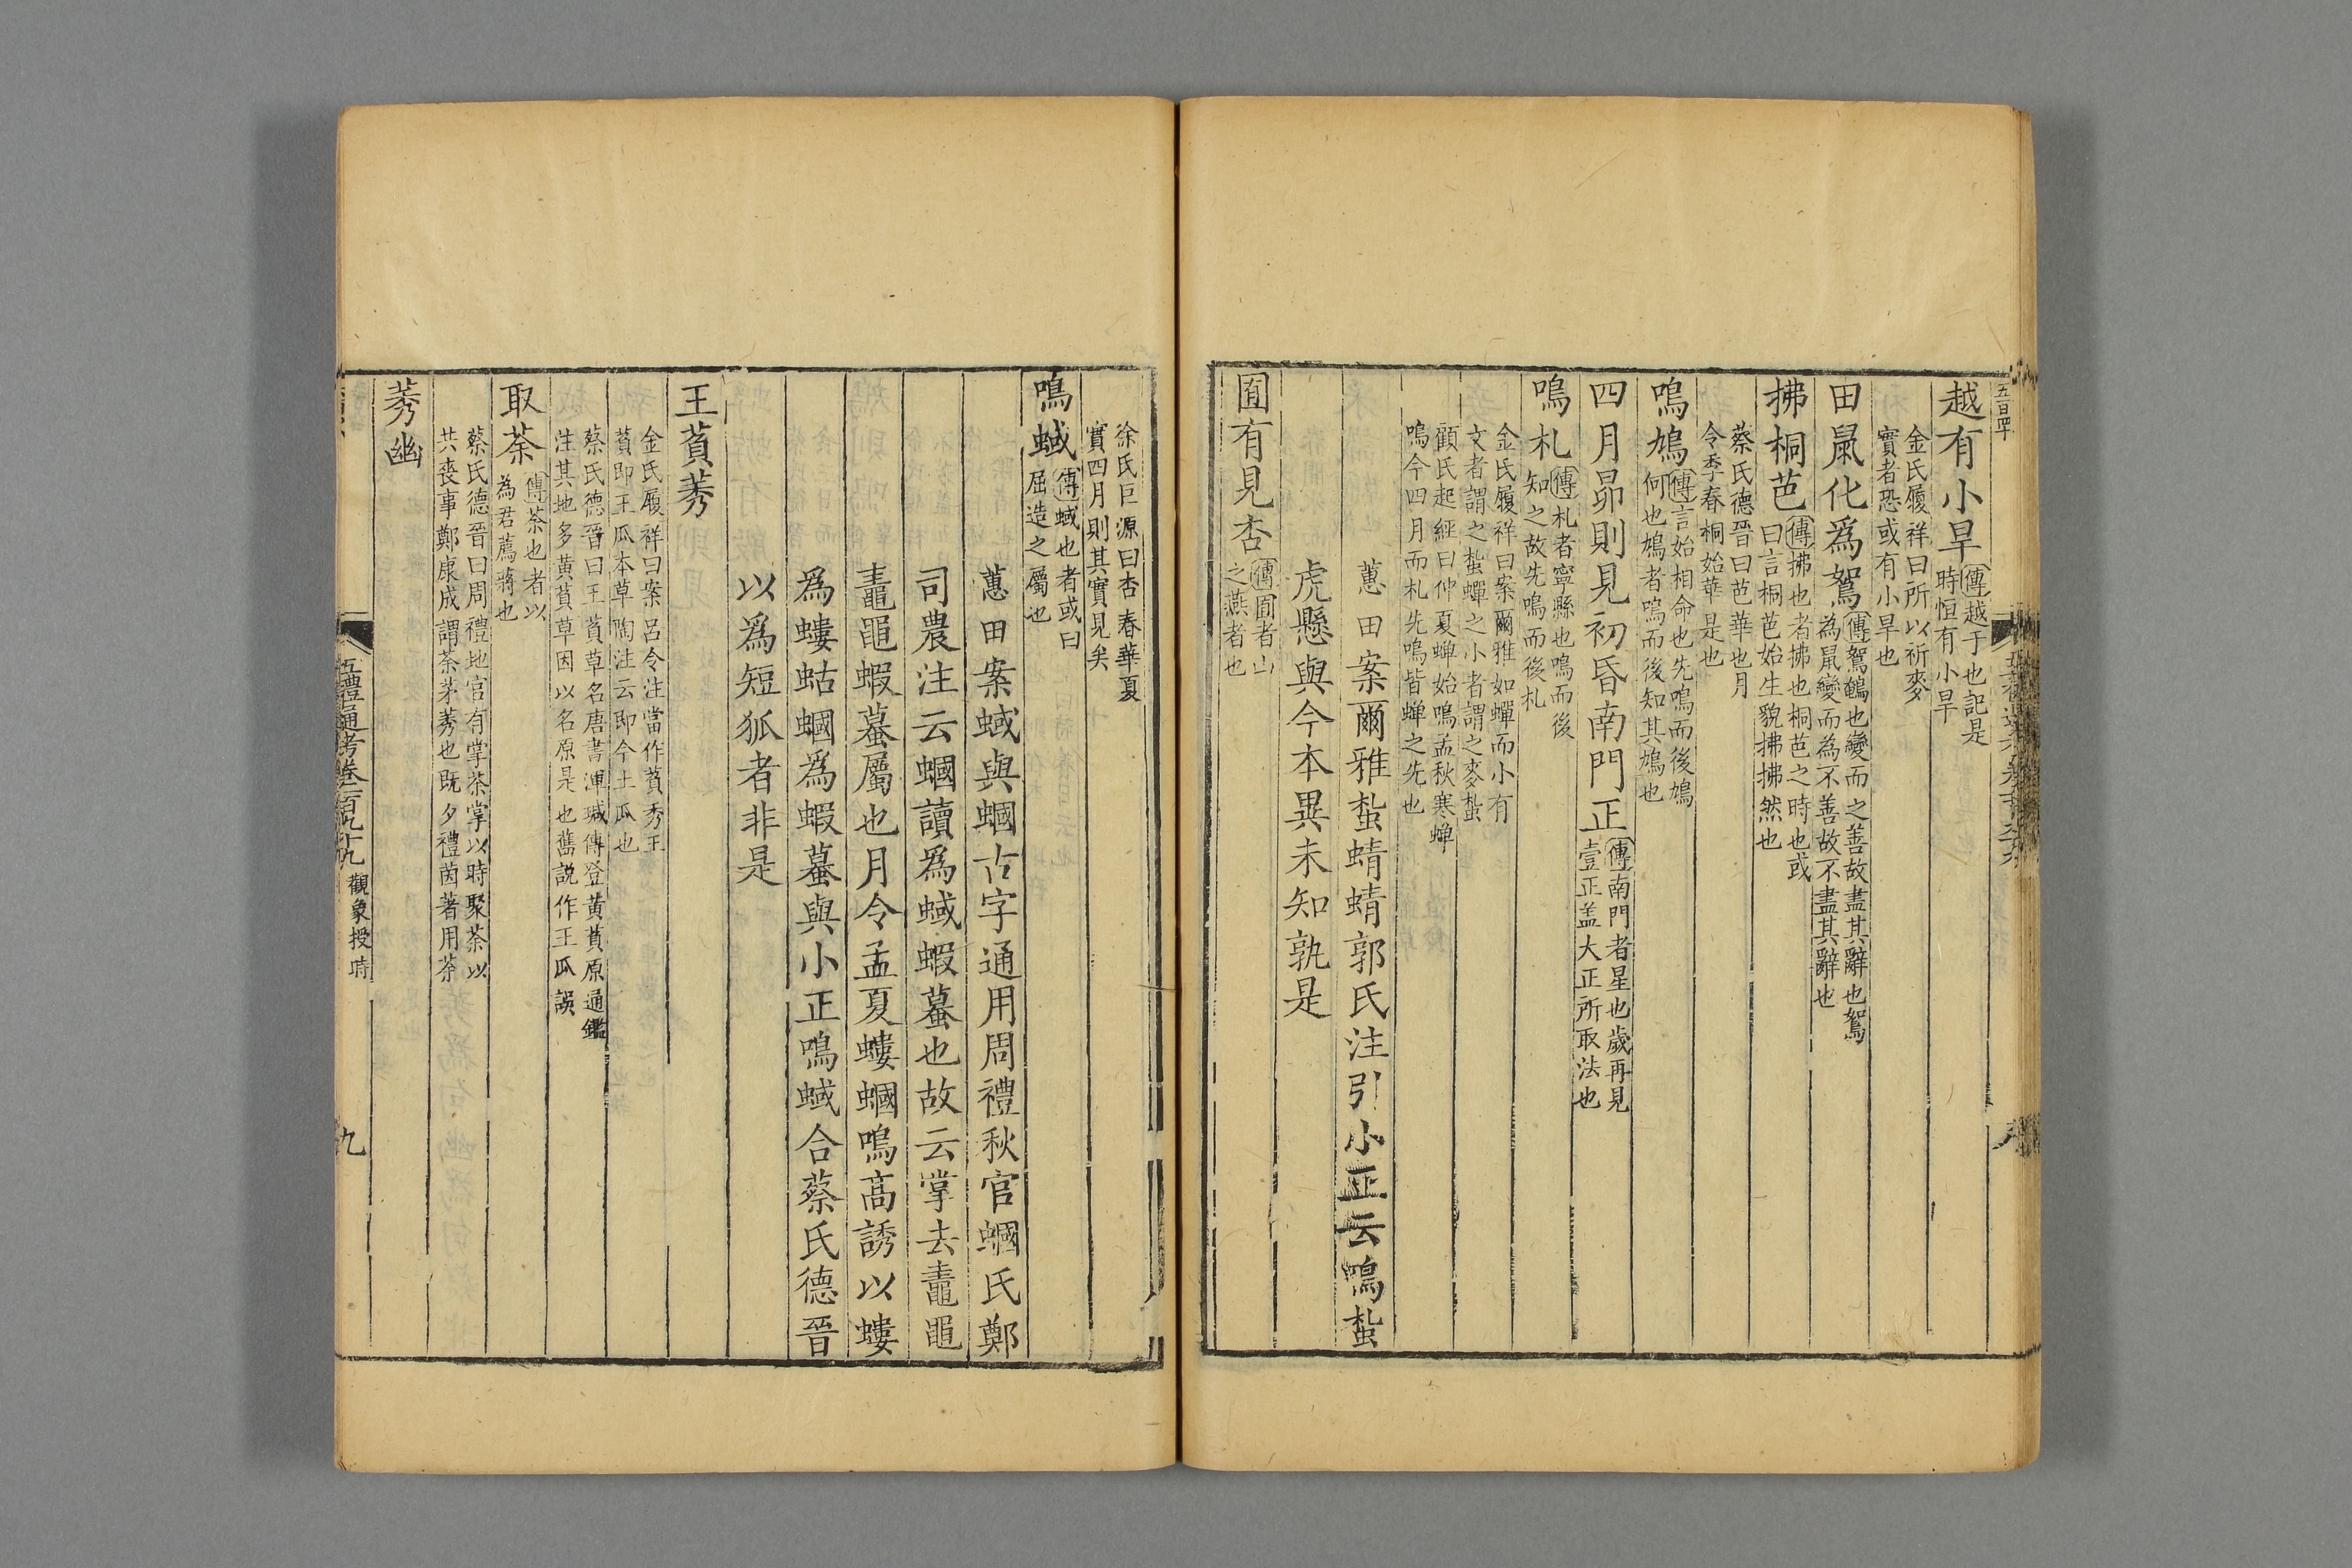 五百四
越有小旱傳越于也記是時恒有小旱
金氏履祥曰所以祈麥實者恐或有小旱也
田鼠化爲鴽傳鴽鵪也變而之善故盡其辭也鴽為鼠變而為不善故不盡其辭也
拂桐芭傳拂也者拂也桐芭之時也或曰言桐芭始生貌拂拂然也
蔡氏德晉曰芭華也月令季春桐始華是也
鳴鳩傳言始相命也先鳴而後鳩何也鳩者鳴而後知其鳩也
四月昴則見初昏南門正傳南門者星也歲再見壹正盖大正所取法也
鳴札傳札者寧縣也鳴而後知之故先鳴而後札
金氏履祥曰案爾雅如蟬而小有文者謂之蜇蟬之小者謂之麥蜇
顧氏起經曰仲夏蝉始鳴孟秋寒蝉鳴今四月而札先鳴皆蝉之先也
蕙田案爾雅蜇蜻蜻郭氏注引小正云鳴蜇
虎懸與今本異未知孰是
囿有見杏傳囿者山之燕者也
徐氏巨源曰杏春華夏實四月則其實見矣
鳴蜮傳蜮也者或曰屈造之屬也
蕙田案蜮與蟈古字通用周禮秋官蟈氏鄭
司農注云蟈讀爲蜮蝦蟇也故云掌去鼃黽
鼃黽蝦蟇屬也月令孟夏螻蟈鳴高誘以螻
爲螻蛄蟈爲蝦蟇與小正鳴蜮合蔡氏德晉
以爲短狐者非是
王萯莠
金氏履祥曰案呂令注當作萯秀王萯即王瓜本草陶注云即今土瓜也
蔡氏德晉曰王萯草名唐書渾瑊傳登黃萯原通鑑注其地多黃萯草因以名原是也舊説作王瓜誤
取荼傳荼也者以為君薦蔣也
蔡氏德晉曰周禮地官有掌荼掌以時聚荼以共喪事鄭康成謂荼茅莠也既夕禮茵著用荼
莠幽
五禮通考卷一百九十九 觀象授時
九